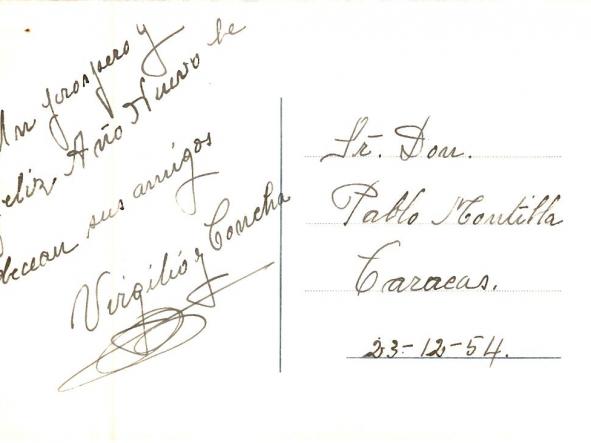 Un prospero y
feliz Año Nuevo le
decean sus amigos
Virgilio y Concha
Sr. Don.
Pablo Montilla
Caracas.
23-12-54.